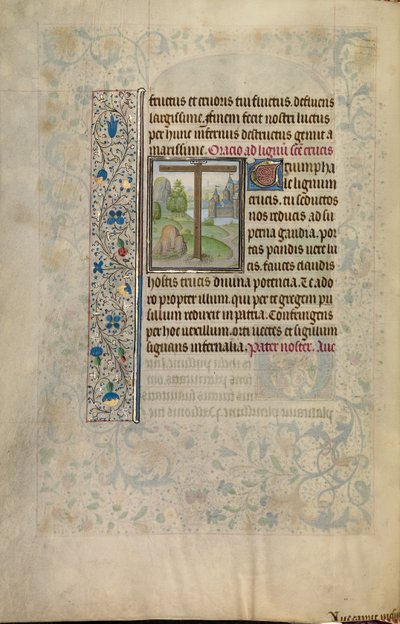 fructus et cruoris tui fluctus. defluens
largissime. finem fecit nostri luctus
per hunc infernus destructus gemit a
marissime. Oracio ad lignum sce crucis
Triumpha
le lignum
crucis. tu seductos
nos reducis ad su
perna gaudia. por
tas pandis vere lu
cis. fauces claudis
hostis trucis divina potencia. Te ado
ro propter illum. qui per te gregem pu
sillum reduxit in patria. Confringens
per hoc vexillum. orti vectes et sigillum
signans infernalia. Pater noster. Aue